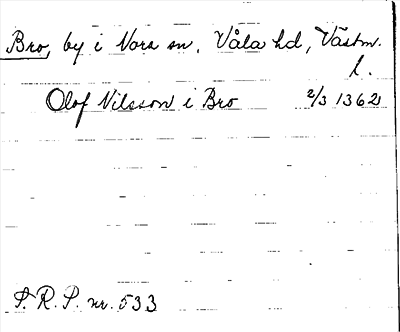 Bro, by i Nora sn, Våla hd, Västm.
l.
Olof Nilsson i Bro 2/3 1362
S. R. P. nr. 533